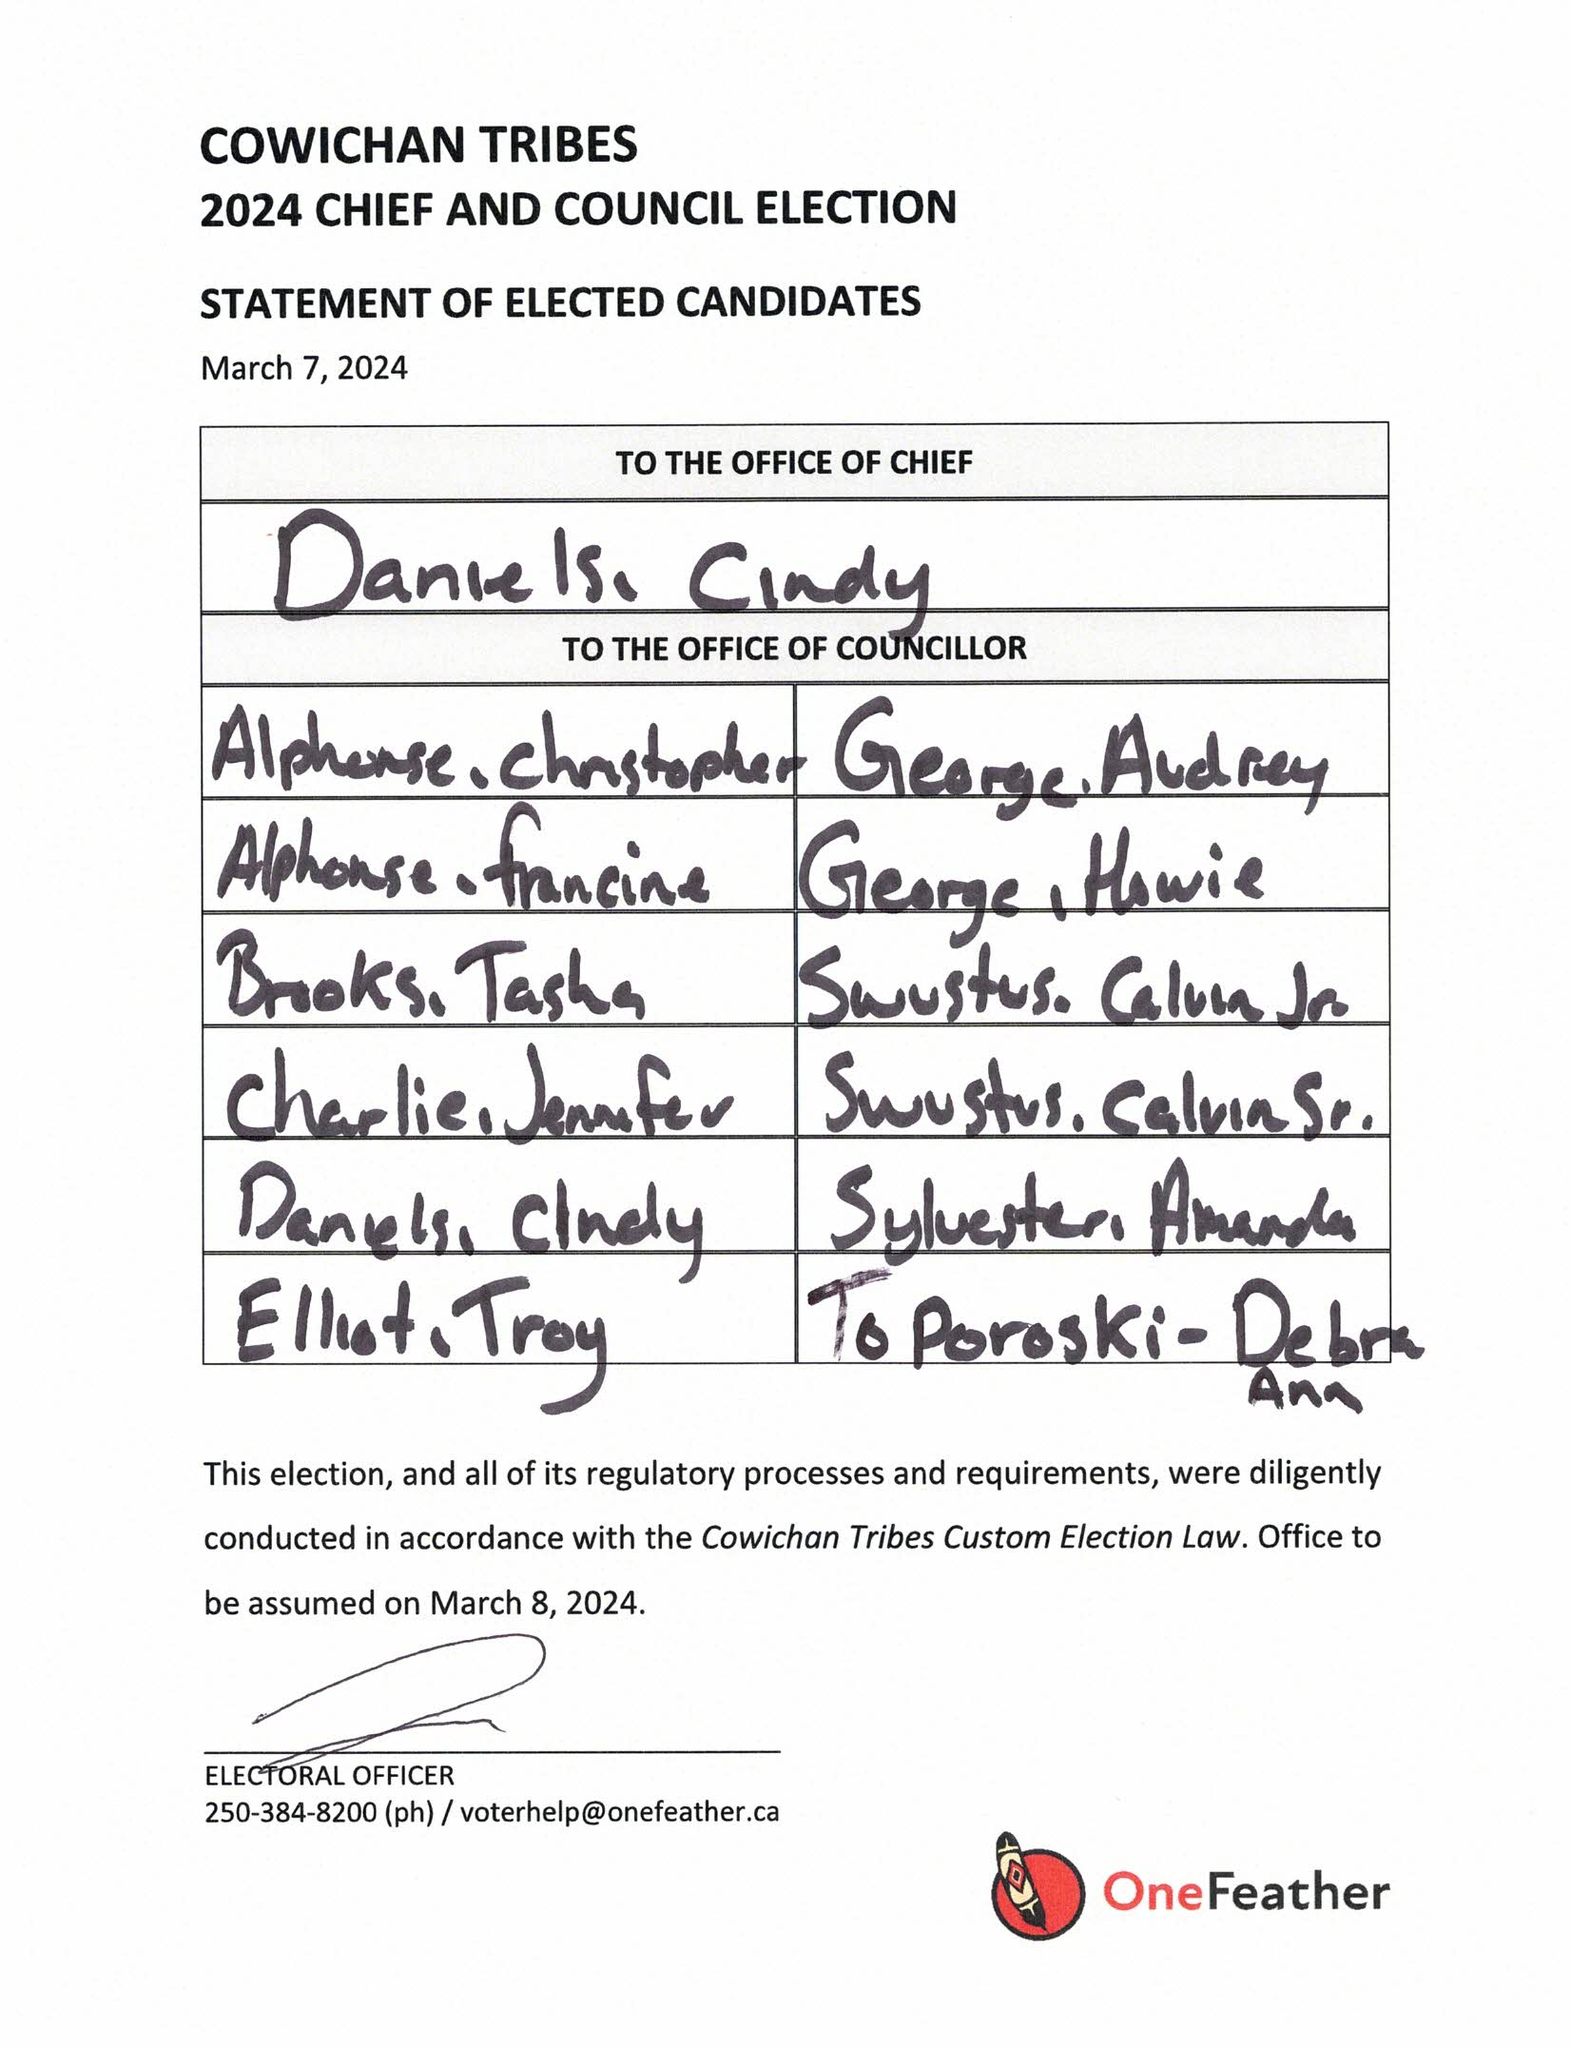 COWICHAN TRIBES
2024 CHIEF AND COUNCIL ELECTION
STATEMENT OF ELECTED CANDIDATES
March 7, 2024
TO THE OFFICE OF CHIEF
Daniels, Cindy
TO THE OFFICE OF COUNCILLOR
Alphonse, Christopher
George, Audrey
Alphonse, francine
George, Howie
Brooks, Tasha
Swustus, Calvin Jr.
Charlie, Jennifer
Swustus, Calvin Sr.
Daniels, Cindy
Sylvester, Amanda
Elliot, Troy
Toporoski - Debra
Ann
This election, and all of its regulatory processes and requirements, were diligently
conducted in accordance with the Cowichan Tribes Custom Election Law. Office to
be assumed on March 8, 2024.
ELECTORAL OFFICER
250-384-8200 (ph) / voterhelp@onefeather.ca
OneFeather